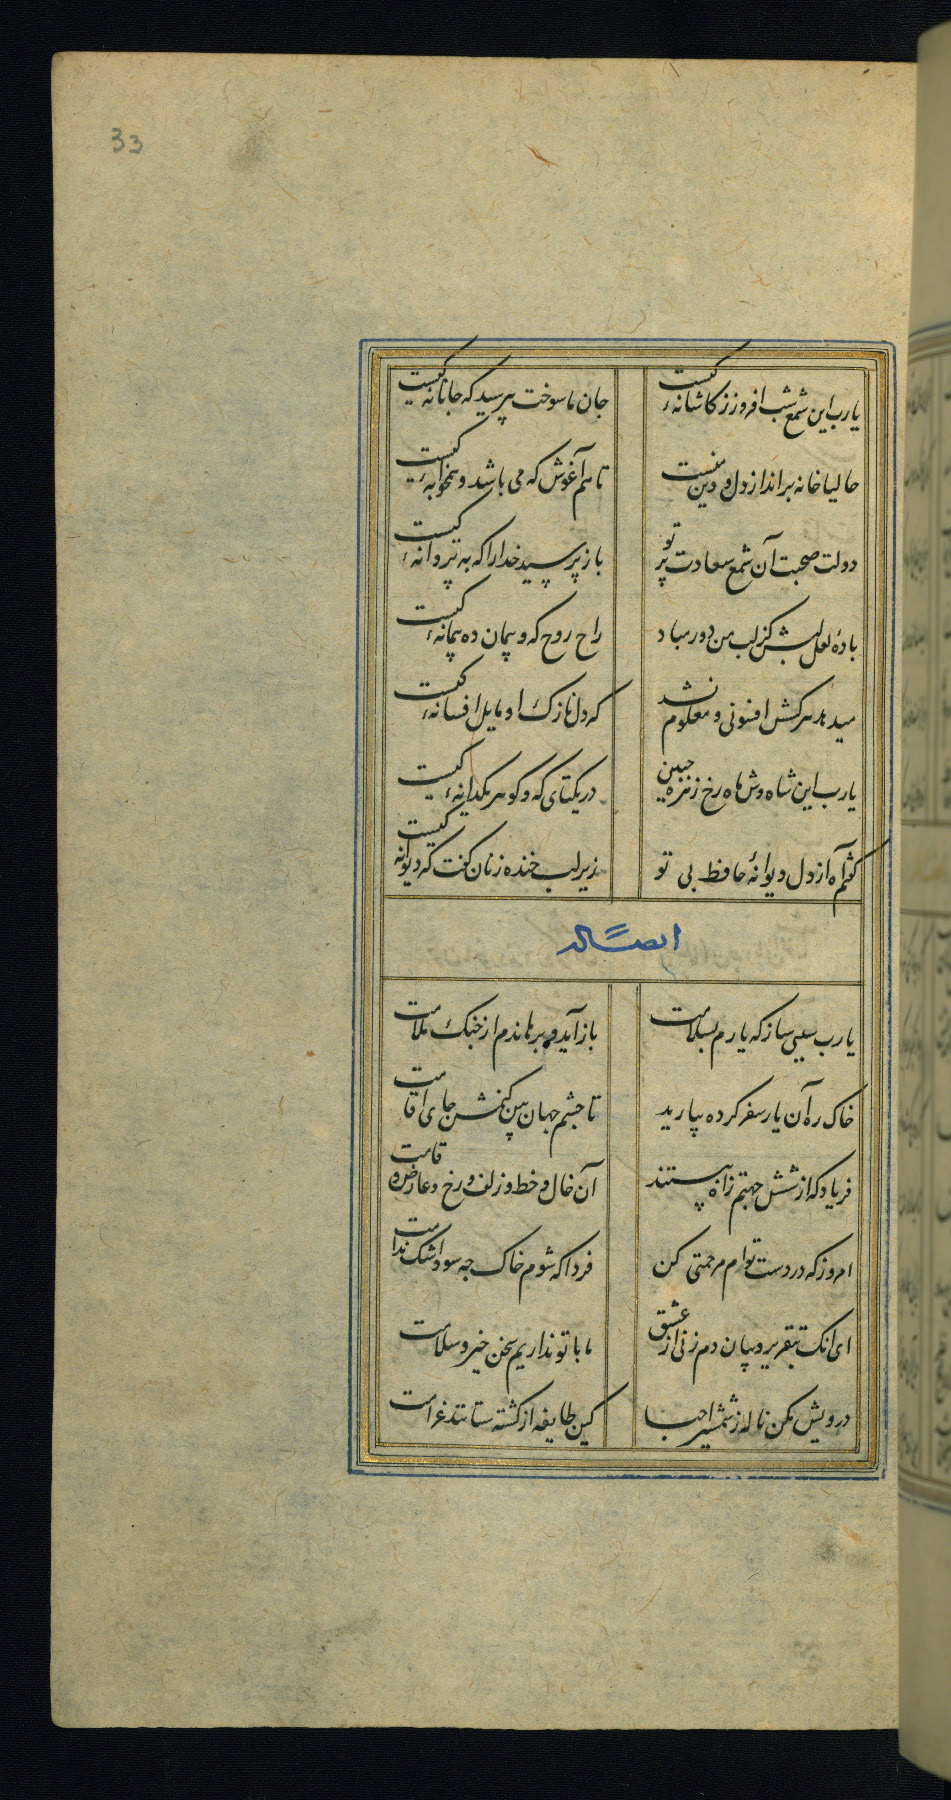 33
یارب این شمع شب افروز ز کاشانهٔ کیست جان ما سوخت بپرسید که جانانهٔ کیست
حالیا خانه برانداز دل و دین منست تا هم آغوش که می باشد و همخوابهٔ کیست
دولت صحبت آن شمع سعادت پرتو باز پرسید خدا را که به پروانهٔ کیست
بادهٔ لعل لبش کز لب من دور مباد راح روح که و پیمان ده پیمانهٔ کیست
میدهد هر کسش افسونی و معلوم نشد که دل نازک او مایل افسانهٔ کیست
یارب این شاه وش ماه رخ زهره جبین در یکتای که و گوهر یکدانهٔ کیست
گفتم آه از دل دیوانهٔ حافظ بی تو زیر لب خنده زنان گفت که دیوانه کیست
ایضاً له
یارب سببی ساز که یارم بسلامت باز آید و برهاندم از چنگ ملامت
خاک ره آن یار سفر کرده بیارید تا چشم جهان بین کنمش جای اقامت
فریاد که از شش جهتم راه ببستند آن خال و خط و زلف و رخ و عارض و قامت
امروز که در دست توام مرحمتی کن فردا که شوم خاک چه سود اشک ندامت
ای انک بتقریر و بیان دم زنی از عشق ما با تو نداریم سخن خیر و سلامت
درویش مکن ناله ز شمشیر احبا کین طایفه از کشته ستانند غرامت